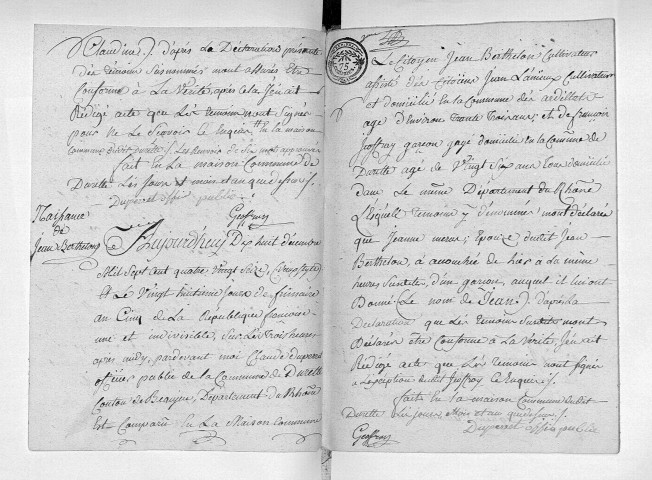 Claudine /. d'après La Déclaration présente
des témoins susnommés mont assurés Etre
Conforme à La Vérité, après cela J'en ait
Rédigé acte que Les témoins n'ont Signés
pour ne Le Sçavoir de Enquis, En la maison
Commune
fait En La maison Commune de
Durette Les Jours et mois et an que dessus /.
Duperet offi. public
Geoffray
Naissance
de
Jean Berthelon
Le Aujourd'huy Dix huit décembre
Mil Sept cent quatre vingt Seize, vieux Style
et Le vingt huitieme Jour de frimaire
an Cinq de La Republique francoise
une et indivisible, Sur Les Trois heures
apres midy, pardevant moi Claude Duperet
officier public de la Commune de Durette
Canton de Beaujeu, Département du Rhône
Est Comparu En La Maison Commune
75
Le Citoyen Jean Berthelon Cultivateur
assisté des Citoiens Jean Cultivateur
et domicilié En la Commune des ardillats
agé d'Environ trente trois ans; et de françois
Joffray garçon agé domicilié en la Commune de
Durette agé de Vingt Six ans Tous domiciliés
dans Le même Département du Rhône
Lesquels temoins y dénommés m'ont déclaré
que Jeanne Epouse dudit Jean
Berthelon, à accouchée de hier à la meme
heure Susdite, d'un garçon, auquel il lui ont
Donné Le nom de Jean /. d'après La
Declaration que Les temoins Susdits m'ont
Declaré être Conforme à La Vérité, J'en ait
Redigé acte que Les temoins n'ont Signé
a L'exception dudit Joffray de Enquis /.
faite En la maison Commune dudit
Durette Les jours Mois et an que dessus /.
Duperet offis. public
Geoffray